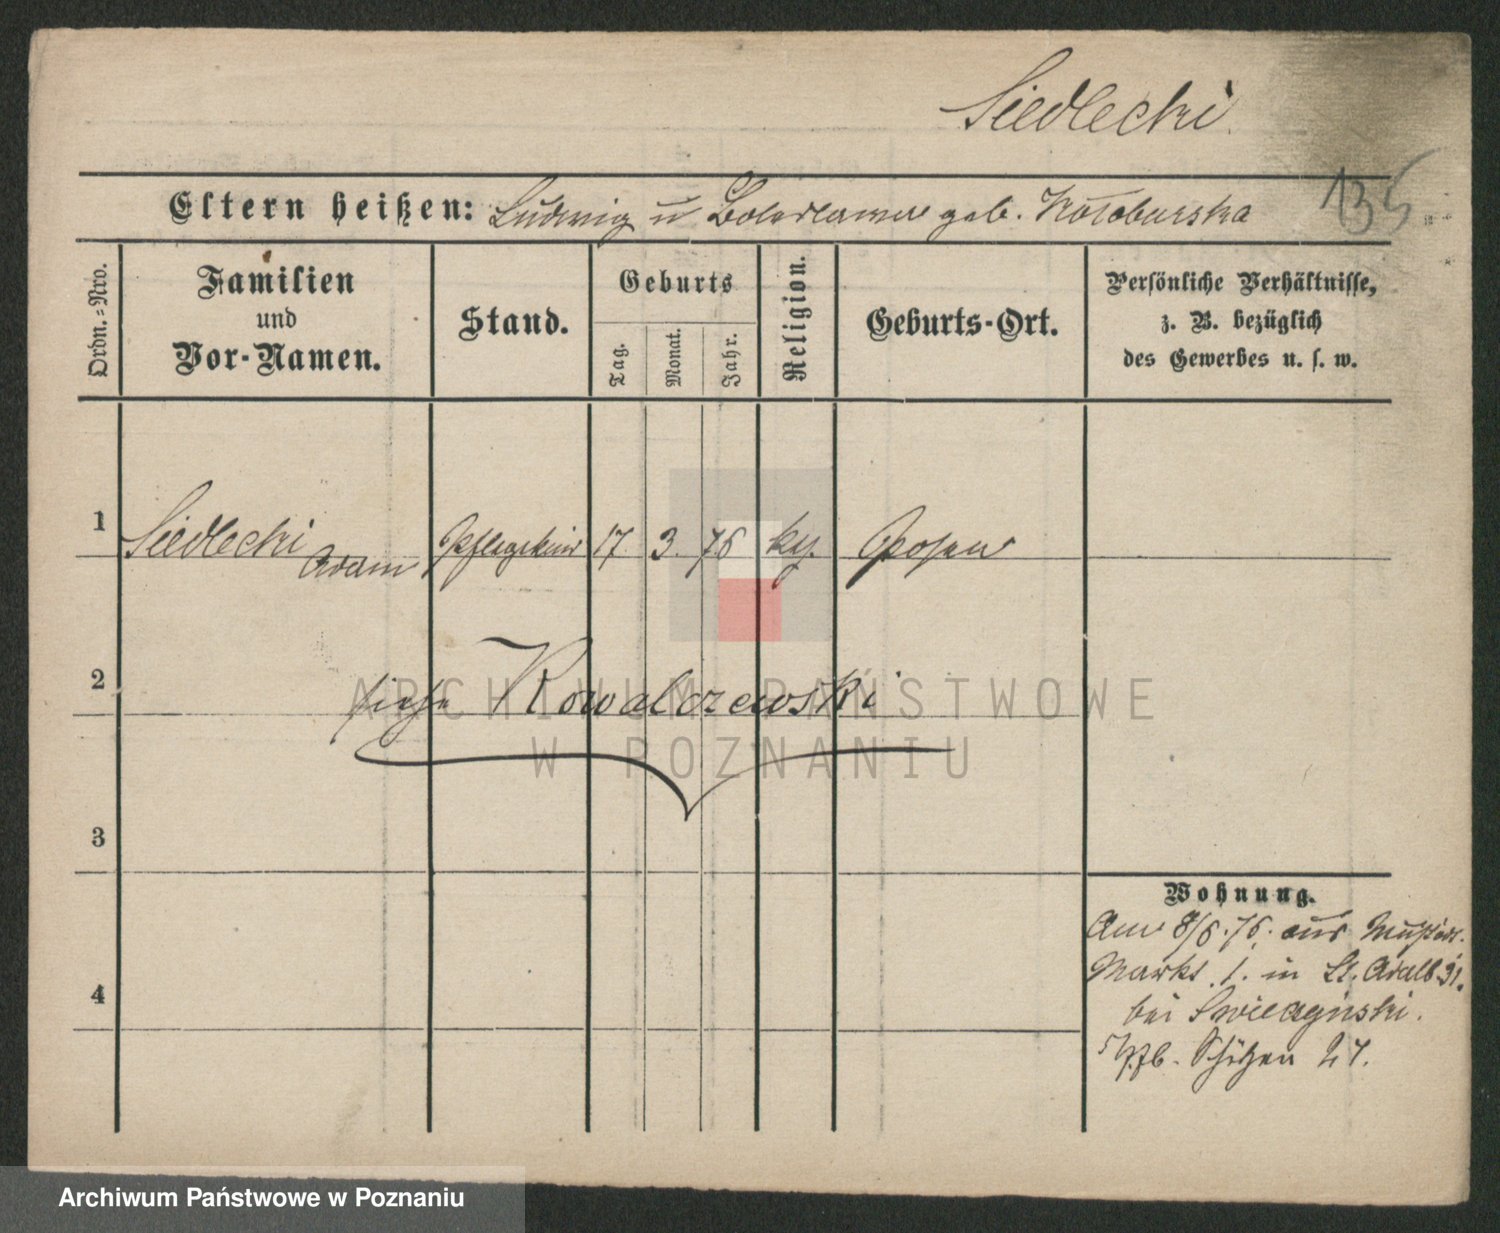 Siedlecki
135
Eltern heißen: Ludwig u geb.
Ordn.=Nro.
Familien
und
Vor-Namen.
Stand.
Geburts
Tag.
Monat.
Jahr.
Religion.
Geburts-Ort.
Persönliche Verhältnisse,
z. B. bezüglich
des Gewerbes u. s. w.
1
Siedlecki
Adam
Pflegekind
17
3.
76
Posen
2
siehe Kowalczewski
ARCHIWUM PAŃSTWOWE
W POZNANIU
3
Wohnung.
8/6.76. aus
Markt 1. in St. Adalb 31.
bei
4
Schützen 27.
Archiwum Państwowe w Poznaniu